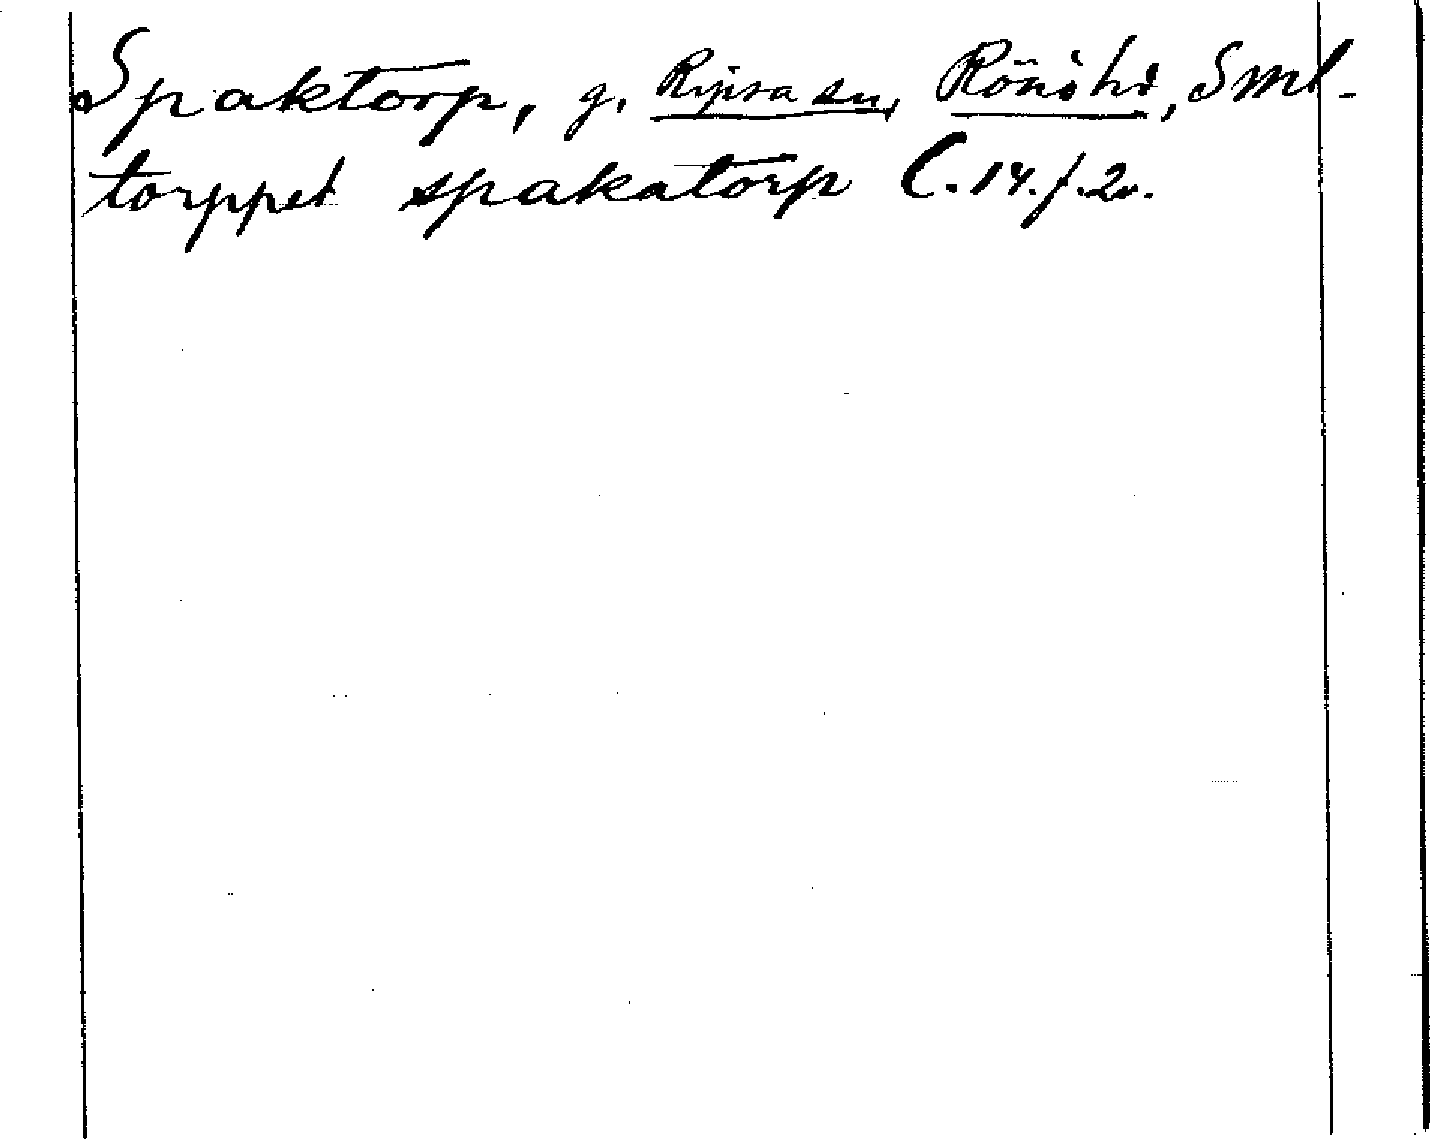 Spaktorp, g. Ripsa sn, Rönö hd, Sml.
torppet spakatorp C.14.f.2v.